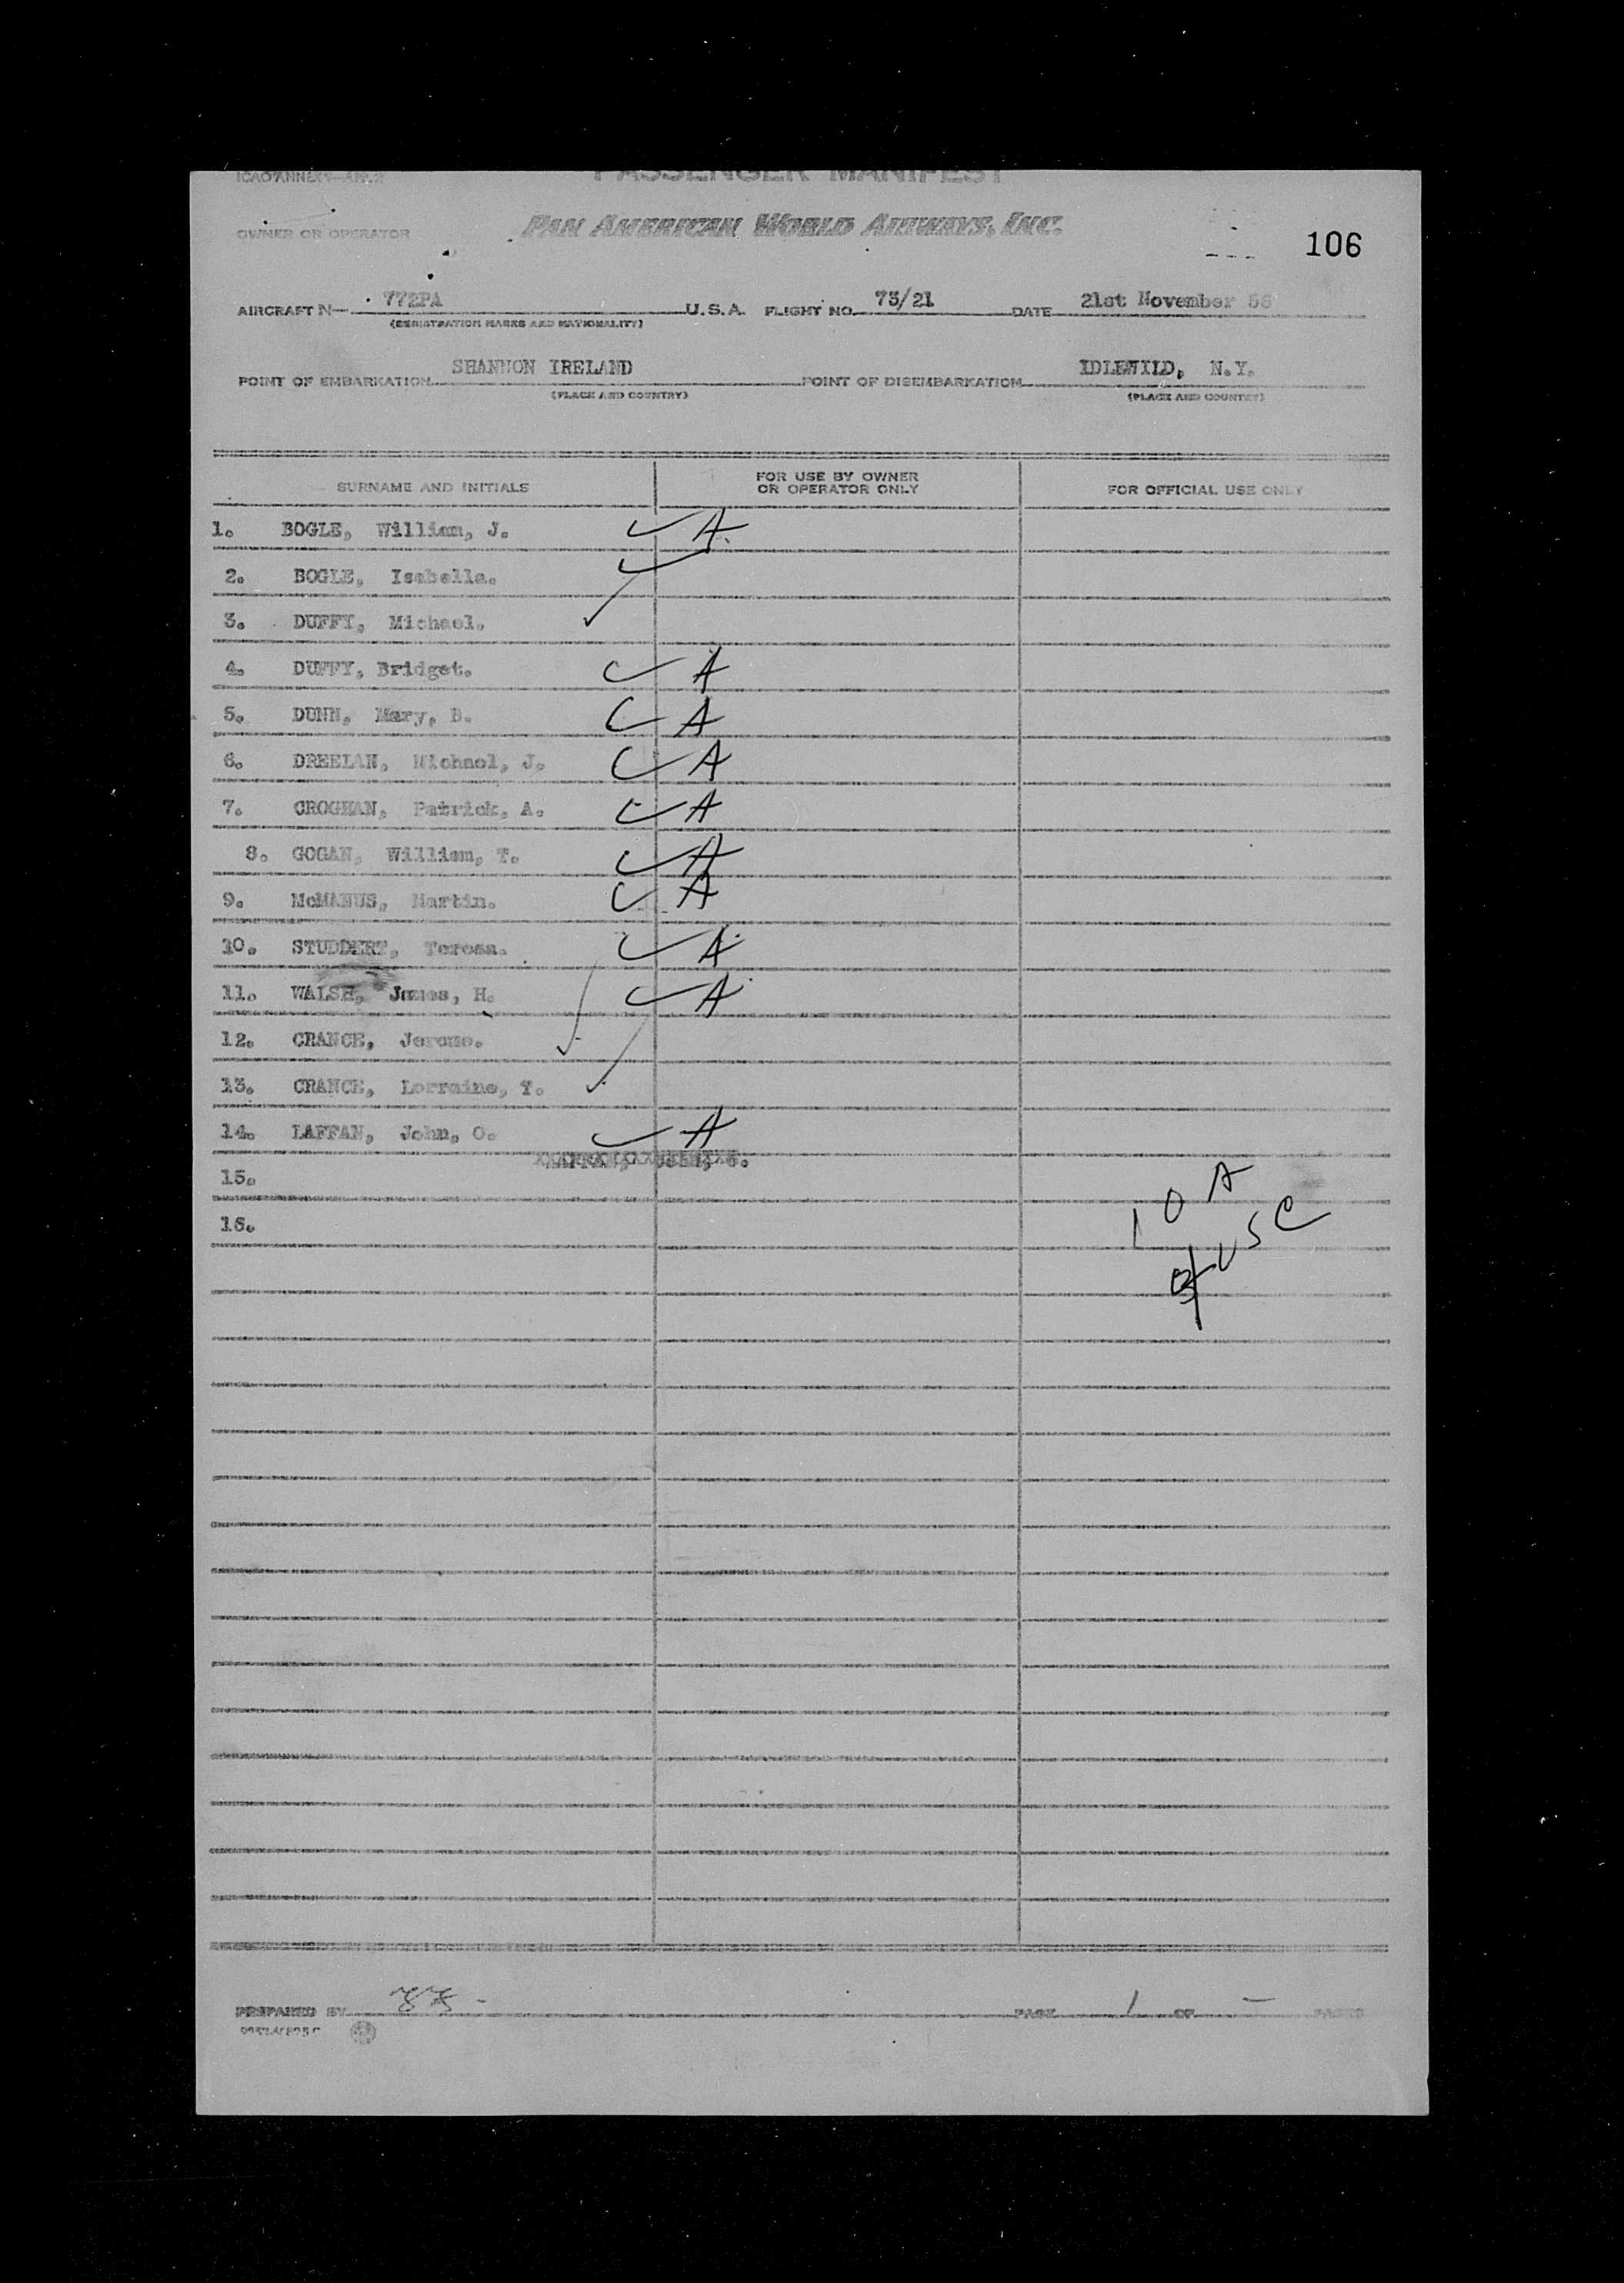 ICAO ANNEX 9—APP. 2
PASSENGER MANIFEST
OWNER OR OPERATOR
PAN AMERICAN WORLD AIRWAYS, INC.
106
AIRCRAFT N— 772PA U.S.A. FLIGHT NO. 73/21 DATE 21st November 56
(REGISTRATION MARKS AND NATIONALITY)
POINT OF EMBARKATION SHANNON IRELAND POINT OF DISEMBARKATION IDLEWILD, N.Y.
(PLACE AND COUNTRY) (PLACE AND COUNTRY)
SURNAME AND INITIALS FOR USE BY OWNER OR OPERATOR ONLY FOR OFFICIAL USE ONLY
1. BOGLE, William, J. ✓ A.
2. BOGLE, Isabella. ✓
3. DUFFY, Michael. ✓
4. DUFFY, Bridget. ✓ A
5. DUNN, Mary, B. ✓ A
6. DREELAN, Michael, J. ✓ A
7. CROGHAN, Patrick, A. ✓ A
8. GOGAN, William, T. ✓ A
9. McMANUS, Martin. ✓ A
10. STUDDERT, Teresa. ✓ A
11. WALSH, James, H. ✓ A
12. CRANCE, Jerome. ✓
13. CRANCE, Lorraine, T. ✓
14. LAFFAN, John, O. ✓ A
15.
10 A
16.
4 USC
PREPARED BY PAGE 1 OF — PAGES